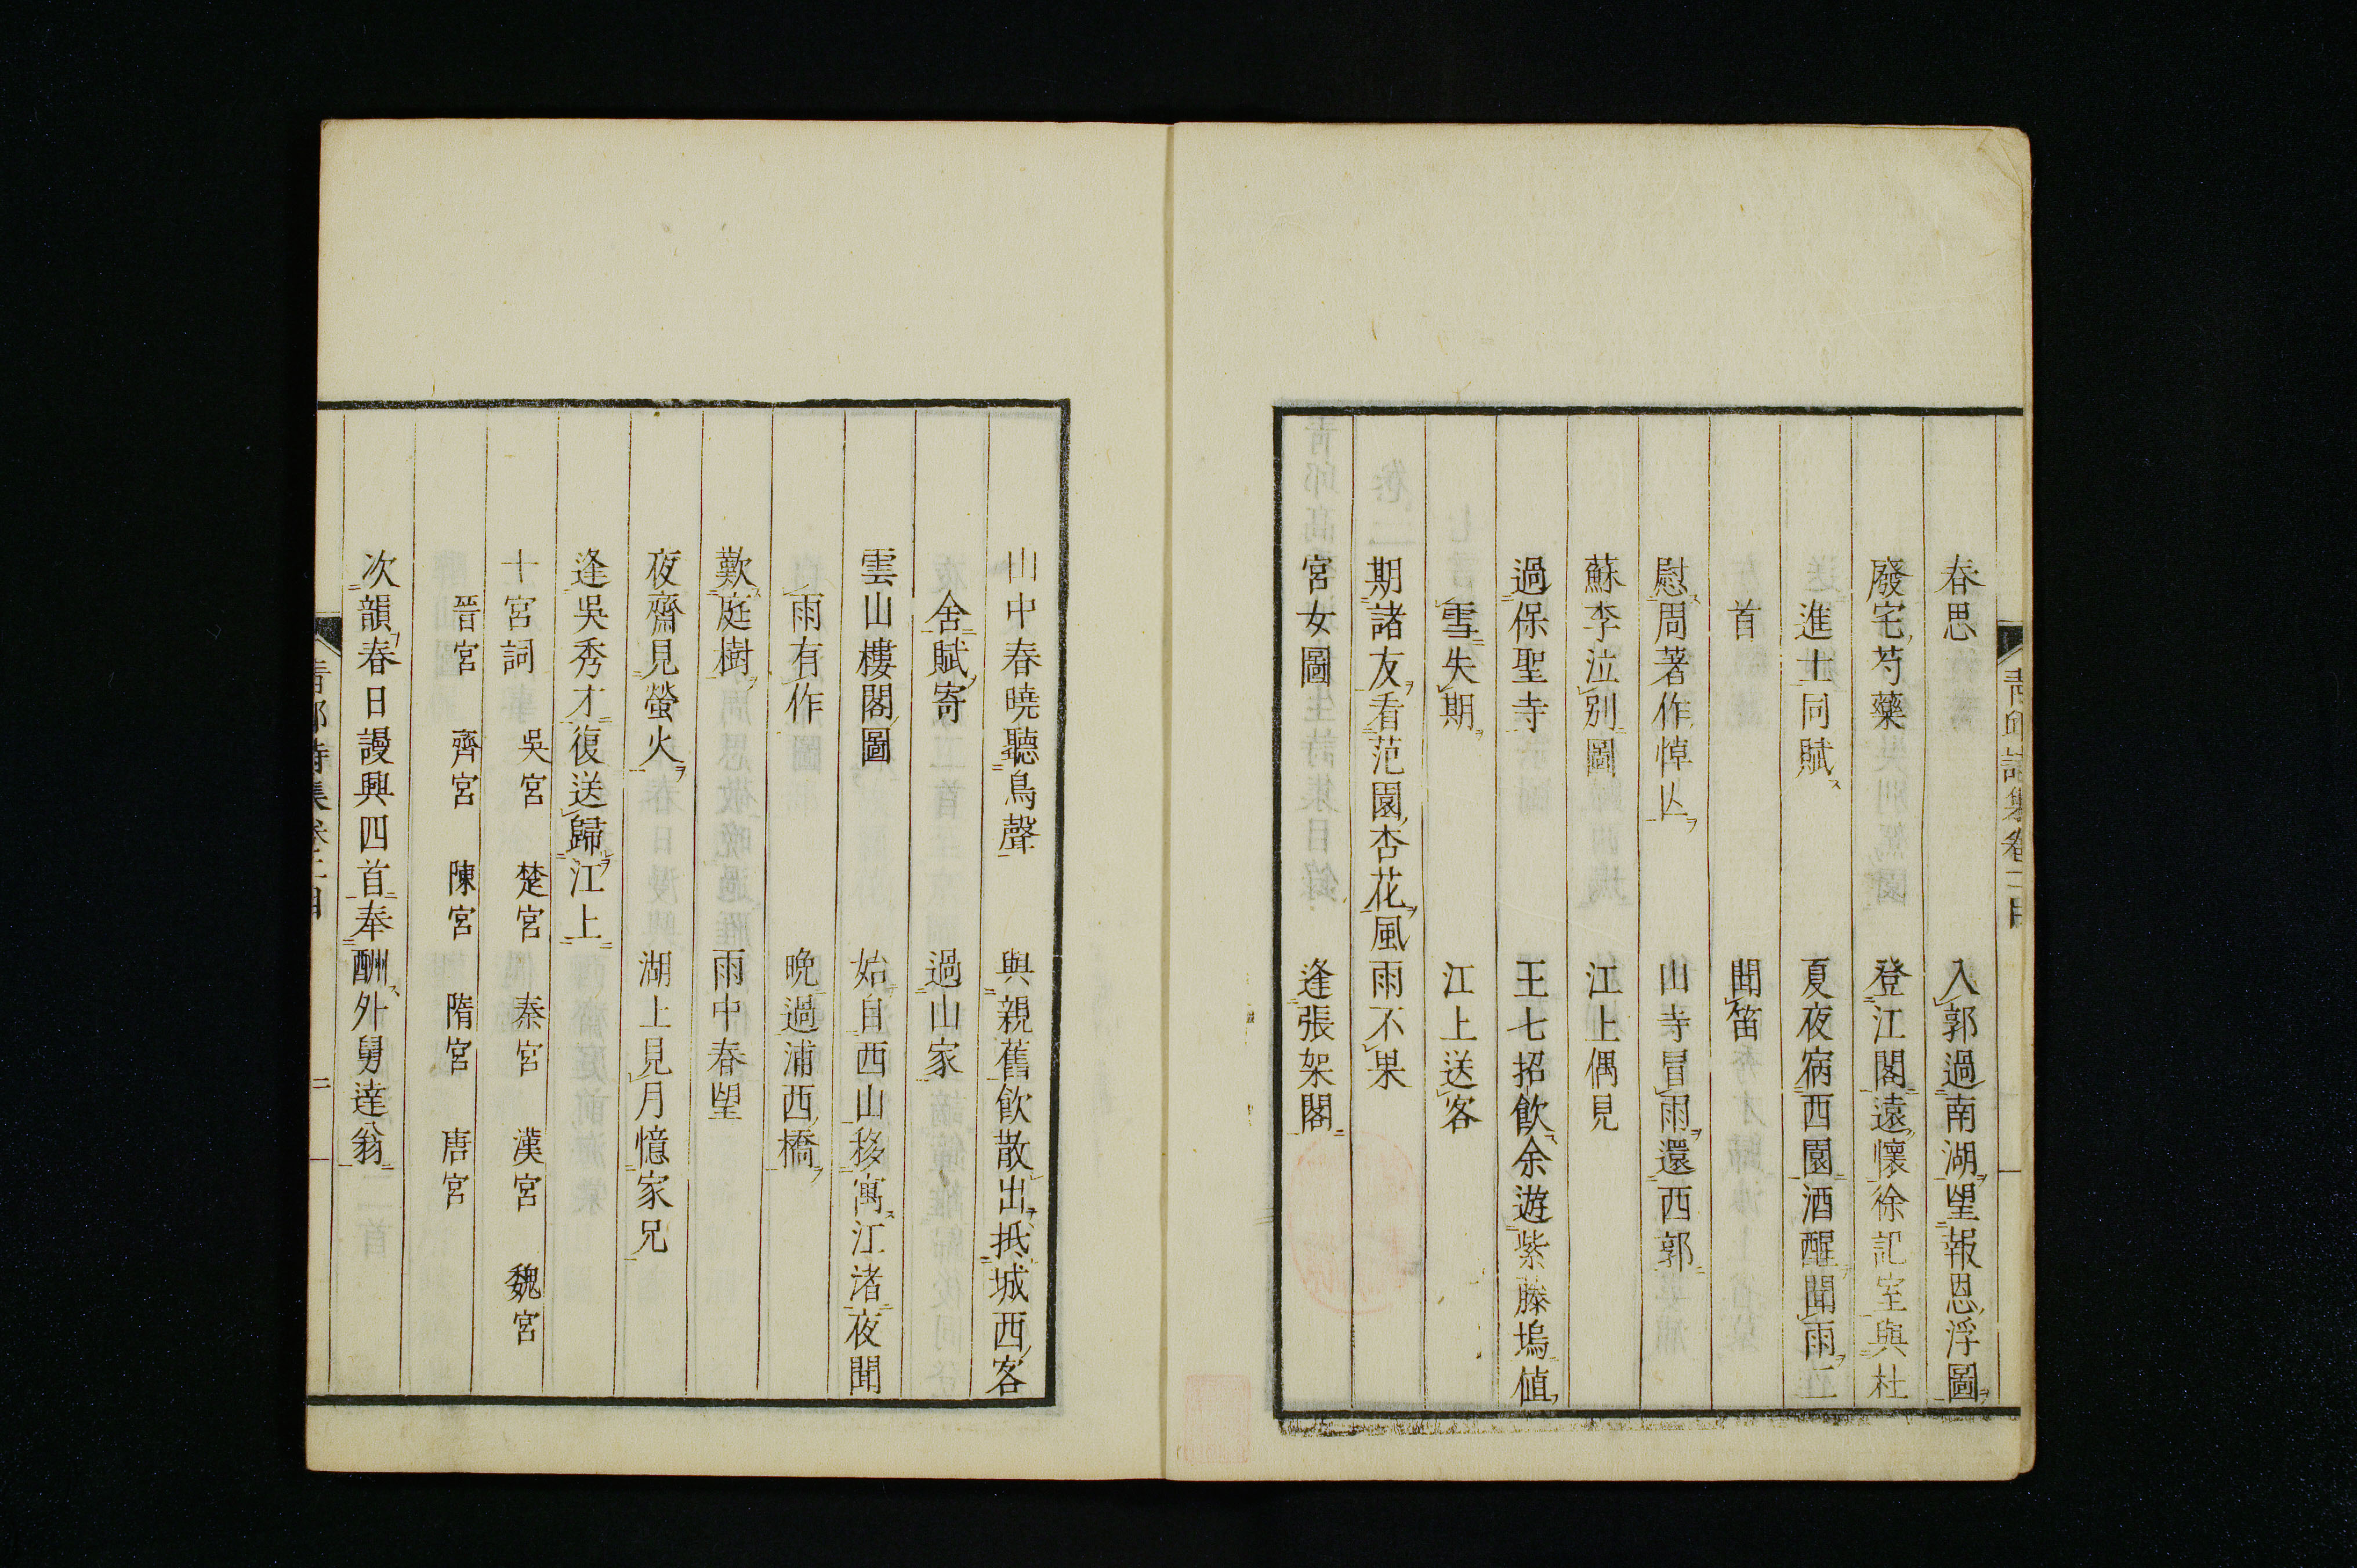 春思　入郭過南湖望報恩浮圖
廢宅芍藥　登江閣遠懷徐記室與杜
進士同賦　夏夜宿西園酒醒聞雨二
首　聞笛
慰周著作悼亡　山寺冒雨還西郭
蘇李泣別圖　江上偶見
過保聖寺　王七招飲余遊紫藤塢値
雪失期　江上送客
期諸友看范園杏花風雨不果
宮女圖　逢張架閣
山中春曉聽鳥聲　與親舊飲散出抵城西客
舍賦寄　過山家
雲山樓閣圖　始自西山移寓江渚夜聞
雨有作　晚過浦西橋
歎庭樹　雨中春望
夜齋見螢火　湖上見月憶家兄
逢吳秀才復送歸江上
十宮詞　吳宮　楚宮　秦宮　漢宮　魏宮
晉宮　齊宮　陳宮　隋宮　唐宮
次韻春日謾興四首奉酬外舅達翁